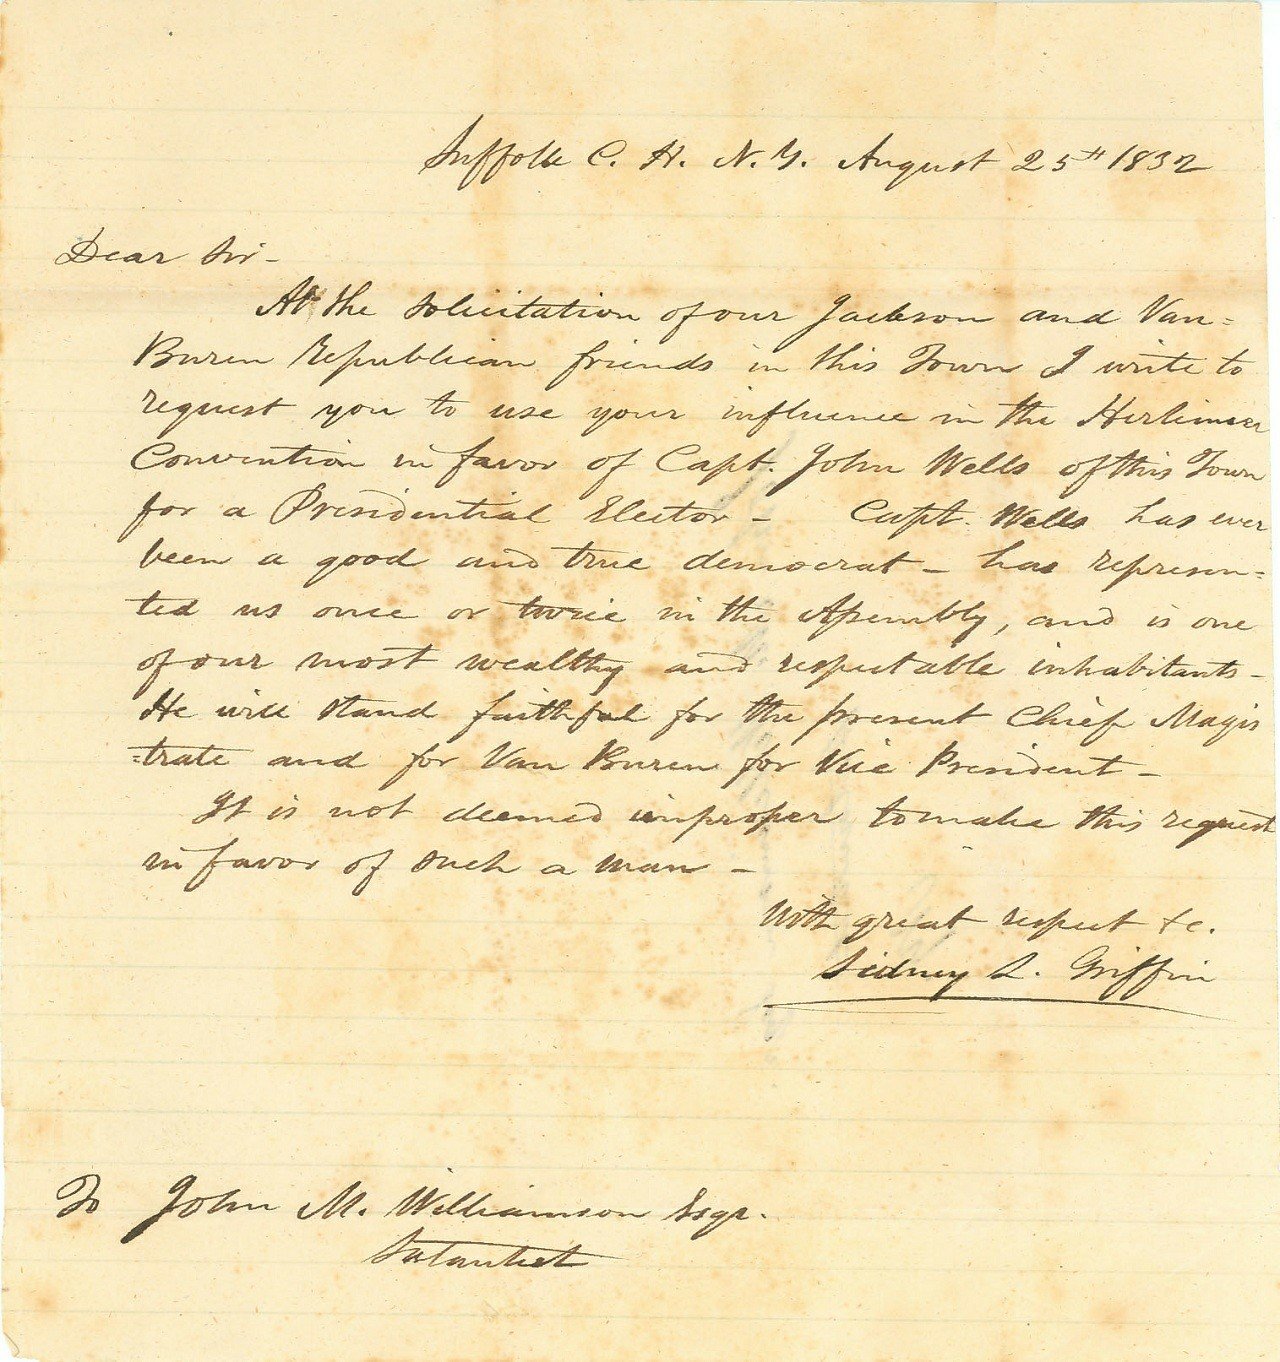 Suffolk C. H. N. Y. August 25th 1832
Dear Sir -
At the solicitation of our Jackson and Van=
Buren republican friends in this Town I write to
request you to use your influence in the Herkimer
Convention in favor of Capt. John Wells of this Town
for a Presidential Elector - Capt. Wells has ever
been a good and true democrat - has represen=
ted us once or twice in the Assembly, and is one
of our most wealthy and respectable inhabitants -
He will stand faithful for the present Chief Magis
=trate and for Van Buren for Vice President -
It is not deemed improper to make this request
in favor of such a man -
With great respect &c.
Sidney L. Griffin
To John M. Williamson Esqr.
Setauket